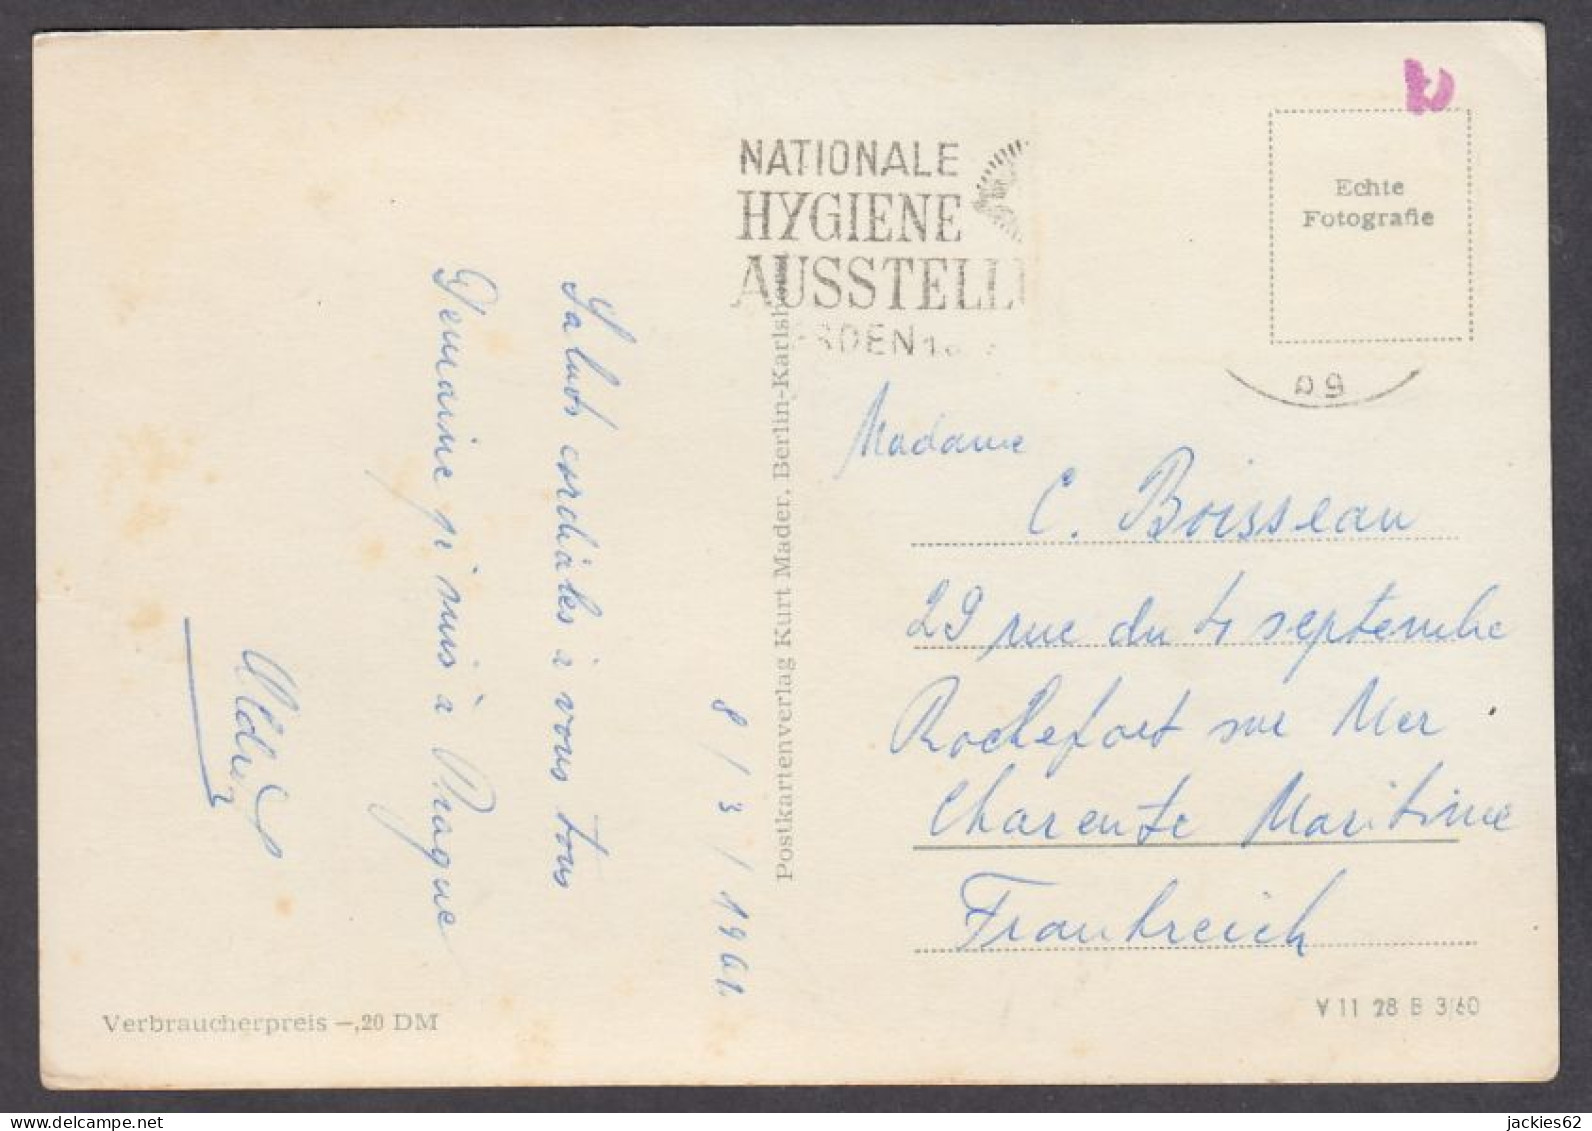 Saluts cordiales à vous tous
Demaine je suis à Prague
8/3/1961.
Verbraucherpreis —,20 DM
Postkartenverlag Kurt Mader, Berlin-Karlsh
NATIONALE
HYGIENE
AUSSTELL
SDEN
Echte
Fotografie
Madame
C. Boisseau
29 rue du 4 septembre
Rochefort sur Mer
Charente Maritime
Frankreich
V 11 28 B 3/60
jackies62